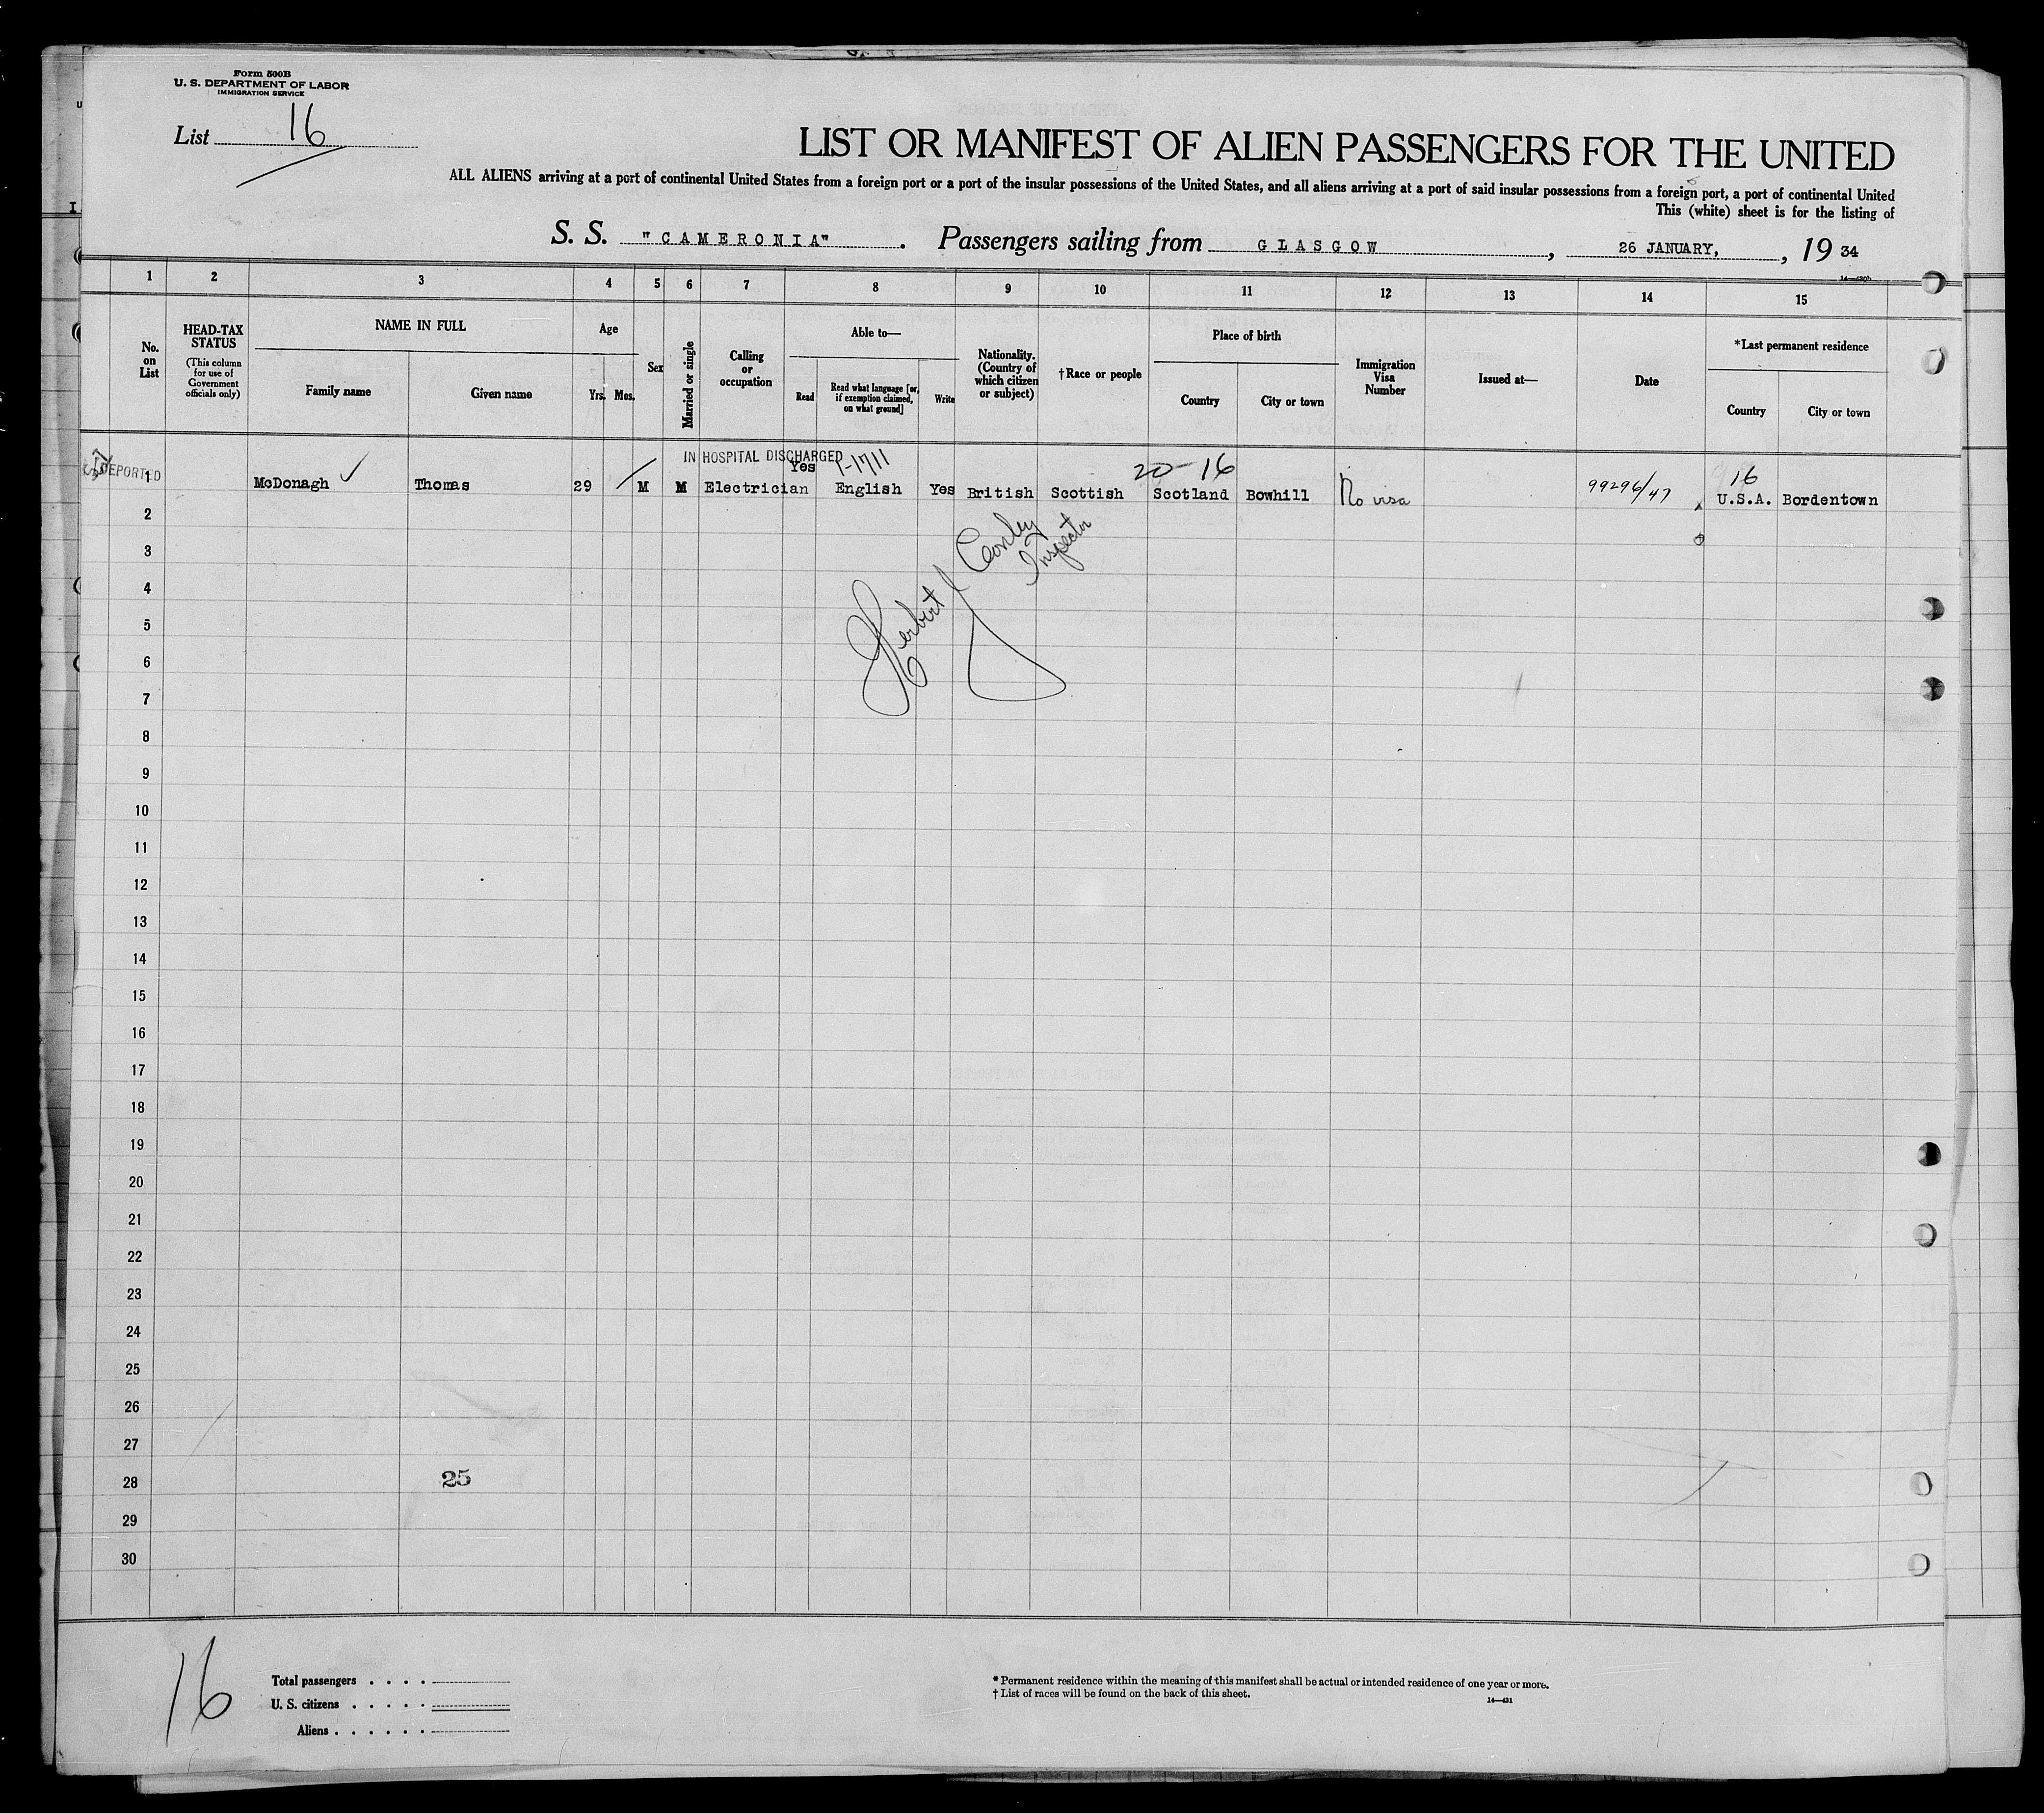 Form 500B
U. S. DEPARTMENT OF LABOR
IMMIGRATION SERVICE
List 16
LIST OR MANIFEST OF ALIEN PASSENGERS FOR THE UNITED
ALL ALIENS arriving at a port of continental United States from a foreign port or a port of the insular possessions of the United States, and all aliens arriving at a port of said insular possessions from a foreign port, a port of continental United
This (white) sheet is for the listing of
S. S. "CAMERONIA" . Passengers sailing from GLASGOW , 26 JANUARY, , 19 34
1 2 3 4 5 6 7 8 9 10 11 12 13 14 15
No. on List
HEAD-TAX STATUS
(This column for use of Government officials only)
NAME IN FULL
Family name
Given name
Age
Yrs. Mos.
Sex
Married or single
Calling or occupation
Able to—
Read
Read what language [or, if exemption claimed, on what ground]
Write
Nationality. (Country of which citizen or subject)
†Race or people
Place of birth
Country
City or town
Immigration Visa Number
Issued at—
Date
*Last permanent residence
Country
City or town
IN HOSPITAL DISCHARGED
DEPORTED
20-16
16
1 McDonagh Thomas 29 M M Electrician Yes English Yes British Scottish Scotland Bowhill No visa 99296/47 U.S.A. Bordentown
2
3
4
5
6
7
8
9
10
11
12
13
14
15
16
17
18
19
20
21
22
23
24
25
26
27
28
29
30
Herbert Conley
Inspector
25
16
Total passengers . . . .
U. S. citizens . . . . .
Aliens . . . . . .
* Permanent residence within the meaning of this manifest shall be actual or intended residence of one year or more.
† List of races will be found on the back of this sheet.
14—431